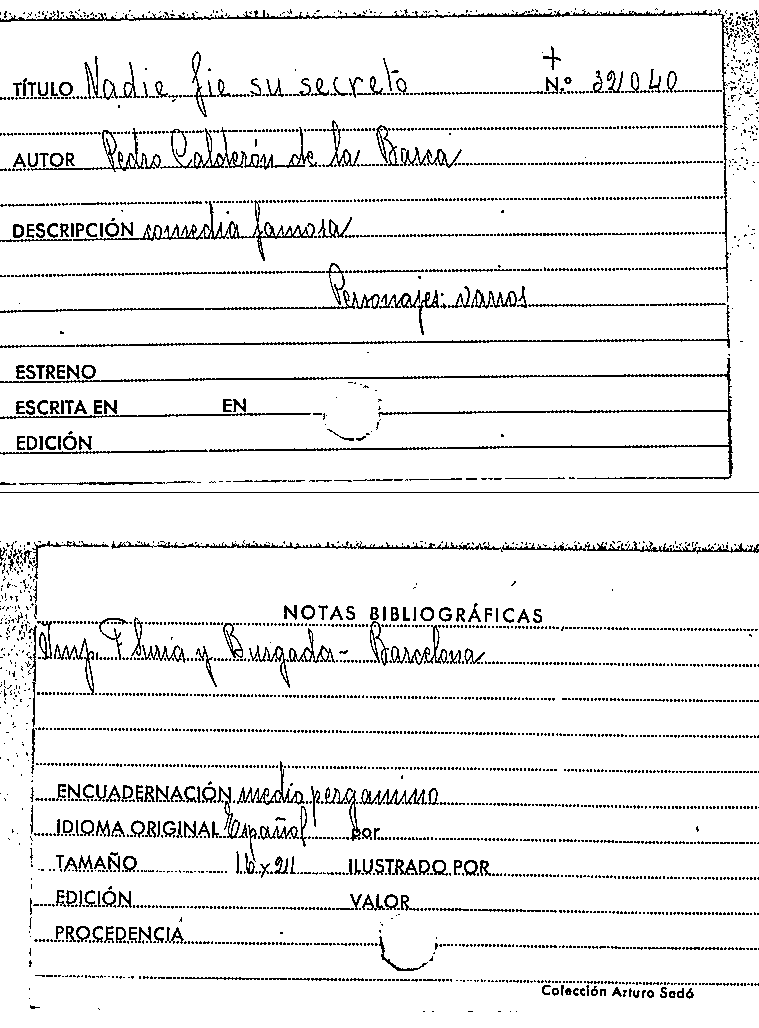 +
TÍTULO Nadie fie su secreto N.º 321040
AUTOR Pedro Calderón de la Barca
DESCRIPCIÓN comedia famosa
Personajes: varios
ESTRENO
ESCRITA EN EN
EDICIÓN
NOTAS BIBLIOGRÁFICAS
Imp. Piferrer y Brugada - Barcelona
ENCUADERNACIÓN medio pergamino
IDIOMA ORIGINAL Español por
TAMAÑO ILUSTRADO POR
EDICIÓN VALOR
PROCEDENCIA
Colección Arturo Sedó